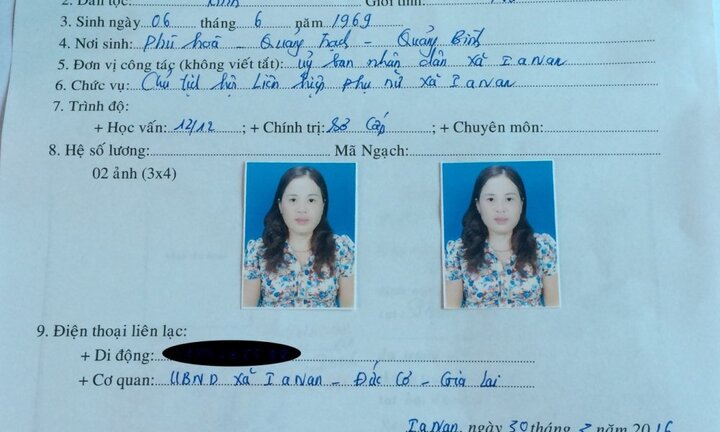 2. Dân tộc: Kinh Giới tính:
3. Sinh ngày 06 tháng 6 năm 1969
4. Nơi sinh: Phù hoá - Quảng Trạch - Quảng Bình
5. Đơn vị công tác (không viết tắt): uỷ ban nhân dân xã IaNan
6. Chức vụ: Chủ tịch hội Liên hiệp phụ nữ xã IaNan
7. Trình độ:
+ Học vấn: 12/12 ; + Chính trị: Sơ Cấp ; + Chuyên môn:
8. Hệ số lương: Mã Ngạch:
02 ảnh (3x4)
9. Điện thoại liên lạc:
+ Di động:
+ Cơ quan: UBND xã IaNan - Đức Cơ - Gia Lai
IaNan, ngày 30 tháng 3 năm 2016